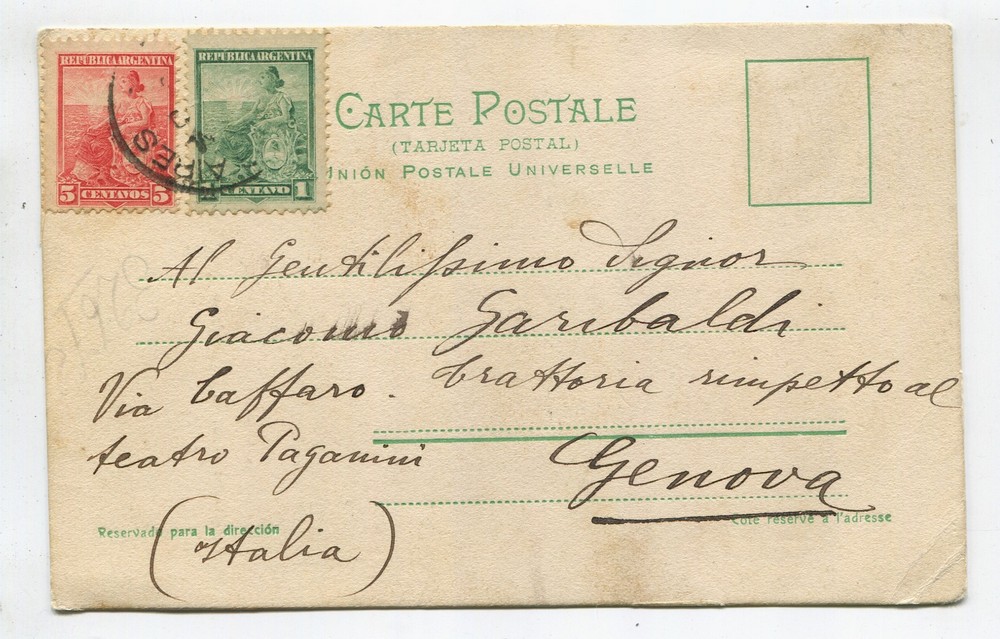 REPUBLICA ARGENTINA
5 CENTAVOS 5
REPUBLICA ARGENTINA
CENTAVO 1
AIRES
CARTE POSTALE
(TARJETA POSTAL)
UNIÓN POSTALE UNIVERSELLE
Al Gentilissimo Signor
Giacomo Garibaldi
Via Caffaro. trattoria rimpetto al
teatro Paganini
Genova
Reservado para la dirección
Côté réservé à l'adresse
(Italia)